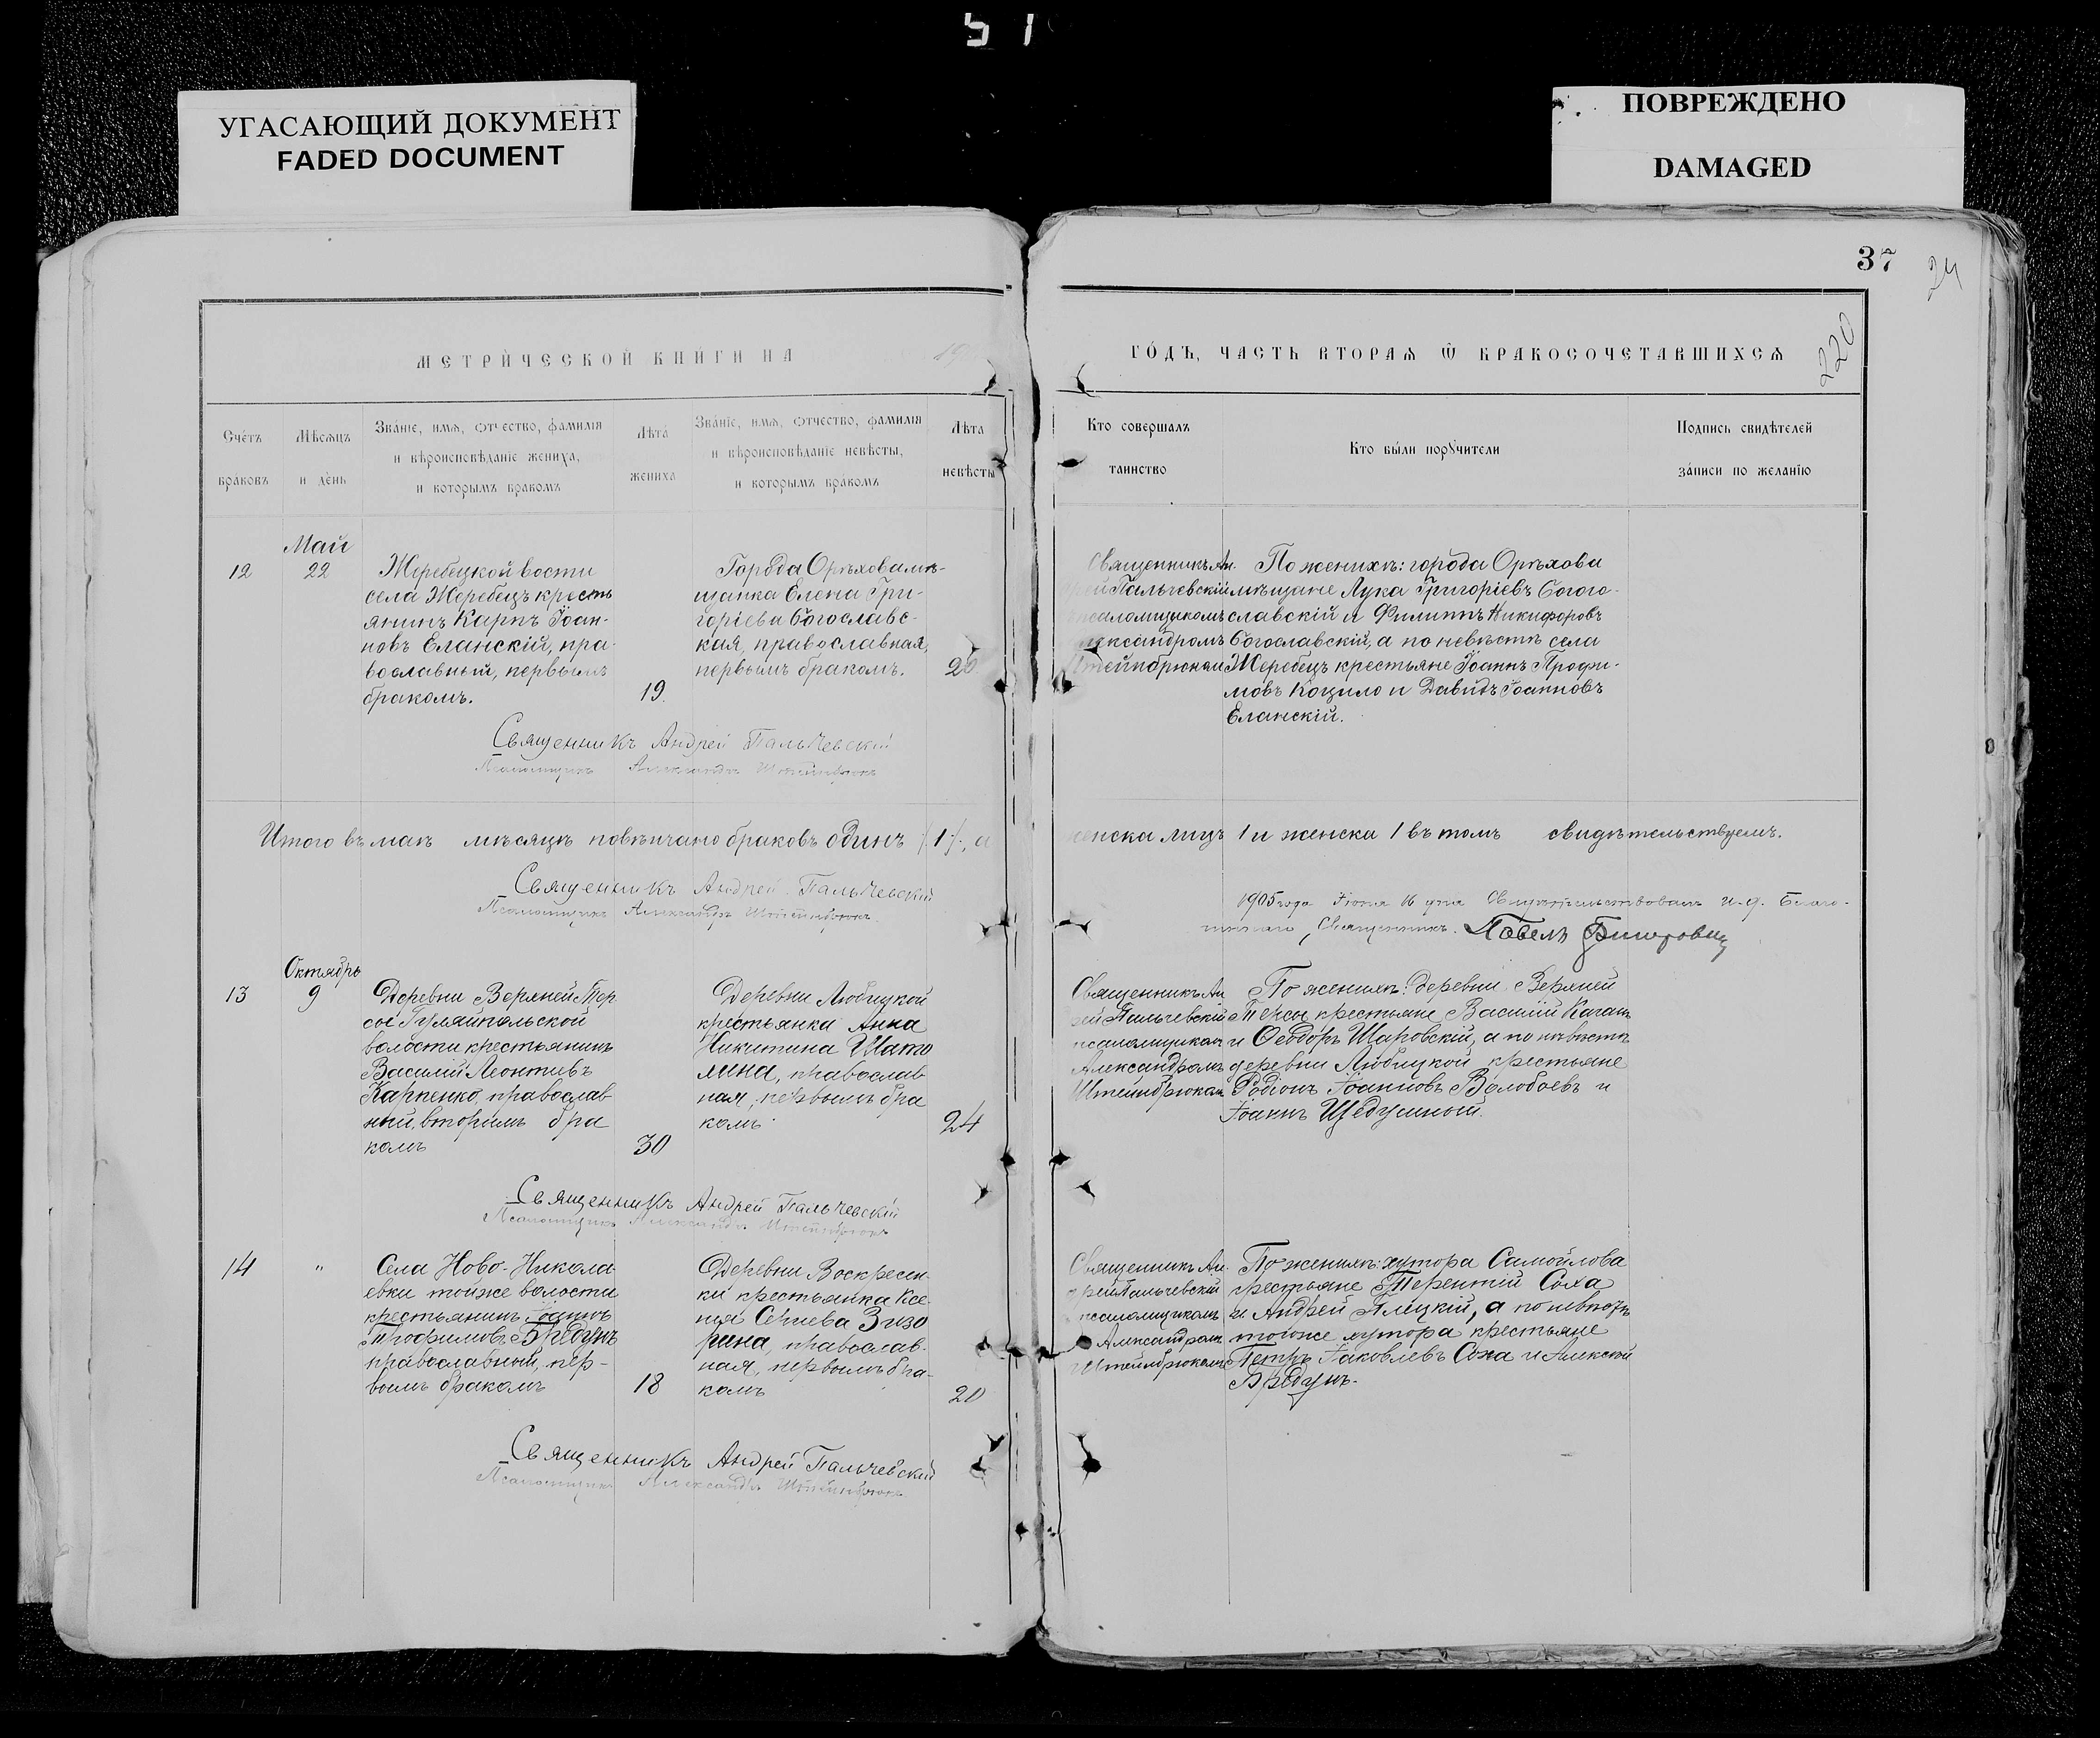 51
УГАСАЮЩИЙ ДОКУМЕНТ
FADED DOCUMENT
ПОВРЕЖДЕНО
DAMAGED
37
24
220
МЕТРИ́ЧЕСКОЙ КНИ́ГИ НА
ГО́ДЪ, ЧАСТЬ ВТОРАѦ Ѿ БРАКОСОЧЕТАВШИХСѦ
Счётъ
бра́ковъ
Мѣсяцъ
и де́нь
Зва́нїе, имя, отчество, фамилїя
и вѣроисповѣданїе жениха,
и которымъ бракомъ
Лѣта
жениха
Зва́нїе, имя, отчество, фамилїя
и вѣроисповѣданїе невѣсты,
и которымъ бракомъ
Лѣта
невѣсты
Кто совершалъ
таинство
Кто были порꙋчители
Подпись свидѣтелей
за́писи по желанїю
12
Май
22
Жеребецкой вости
села Жеребецъ кресть
янинъ Карпъ Іоан-
новъ Еланскій, пра-
вославный, первымъ
бракомъ.
19
Города Орѣхова мѣ-
щанка Елена Гри-
горіева Богославс-
кая, православная,
первымъ бракомъ.
20
Священникъ Ан.
Пальчевскій
псаломщикомъ
Александромъ
Штейнбрюкомъ
По женихѣ: города Орѣхова
мѣщане Лука Григоріевъ Богого-
славскій и Филиппъ Никифоровъ
Богославскій, а по невѣстѣ села
Жеребецъ крестьяне Іоаннъ Трофи-
мовъ Коцило и Давидъ Іоанновъ
Еланскій.
Священникъ Андрей Пальчевскій
Псаломщикъ Александръ Штейнбрюкъ
Итого въ маѣ мѣсяцѣ повѣнчано браковъ одинъ /.1/., а
лицъ 1 и женска 1 въ томъ свидѣтельствуемъ.
Священникъ Андрей Пальчевскій
Псаломщикъ Александръ Штейнбрюкъ
1905 года Іюня 16 дня Свидѣтельствовалъ и. д. Благо-
Священникъ Павелъ
13
Октябрь
9
Деревни Верхней Тер
сы Гуляйпольской
волости крестьянинъ
Василій Леонтіевъ
Карпенко, православ
ный, вторымъ бра
комъ
30
Деревни Любицкой
крестьянка Анна
Никитина Шато
лина, православ
ная, первымъ бра
комъ
24
Священникъ Ан
рей Пальчевскій
псаломщикомъ
Александромъ
Штейнбрюкомъ
По женихѣ: деревни Верхней
Терсы крестьяне Василій Каганъ
и Ѳеодоръ Шаровскій, а по невѣстѣ
деревни Любицкой крестьяне
Родіонъ Іоанновъ Волобоевъ и
Іоаннъ Щедушный.
Священникъ Андрей Пальчевскій
Псаломщикъ Александръ Штейнбрюкъ
14
"
Села Ново-Никола
евки тойже волости
крестьянинъ Іоаннъ
Трофимовъ Бредунъ
православный, пер-
вымъ бракомъ
18
Деревни Воскресен-
ки крестьянка Ксе-
нія
рина, православ-
ная, первымъ бра-
комъ
20
Священникъ Ан.
дрей Пальчевскій
псаломщикомъ
Александромъ
Штейнбрюкомъ
По женихѣ: хутора Самойлова
крестьяне Терентій Соха
и Андрей Плицкій, а по невѣстѣ
тогоже хутора крестьяне
Петръ Іаковлевъ Соха и Алексѣй
Бредунъ.
Священникъ Андрей Пальчевскій
Псаломщикъ Александръ Штейнбрюкъ